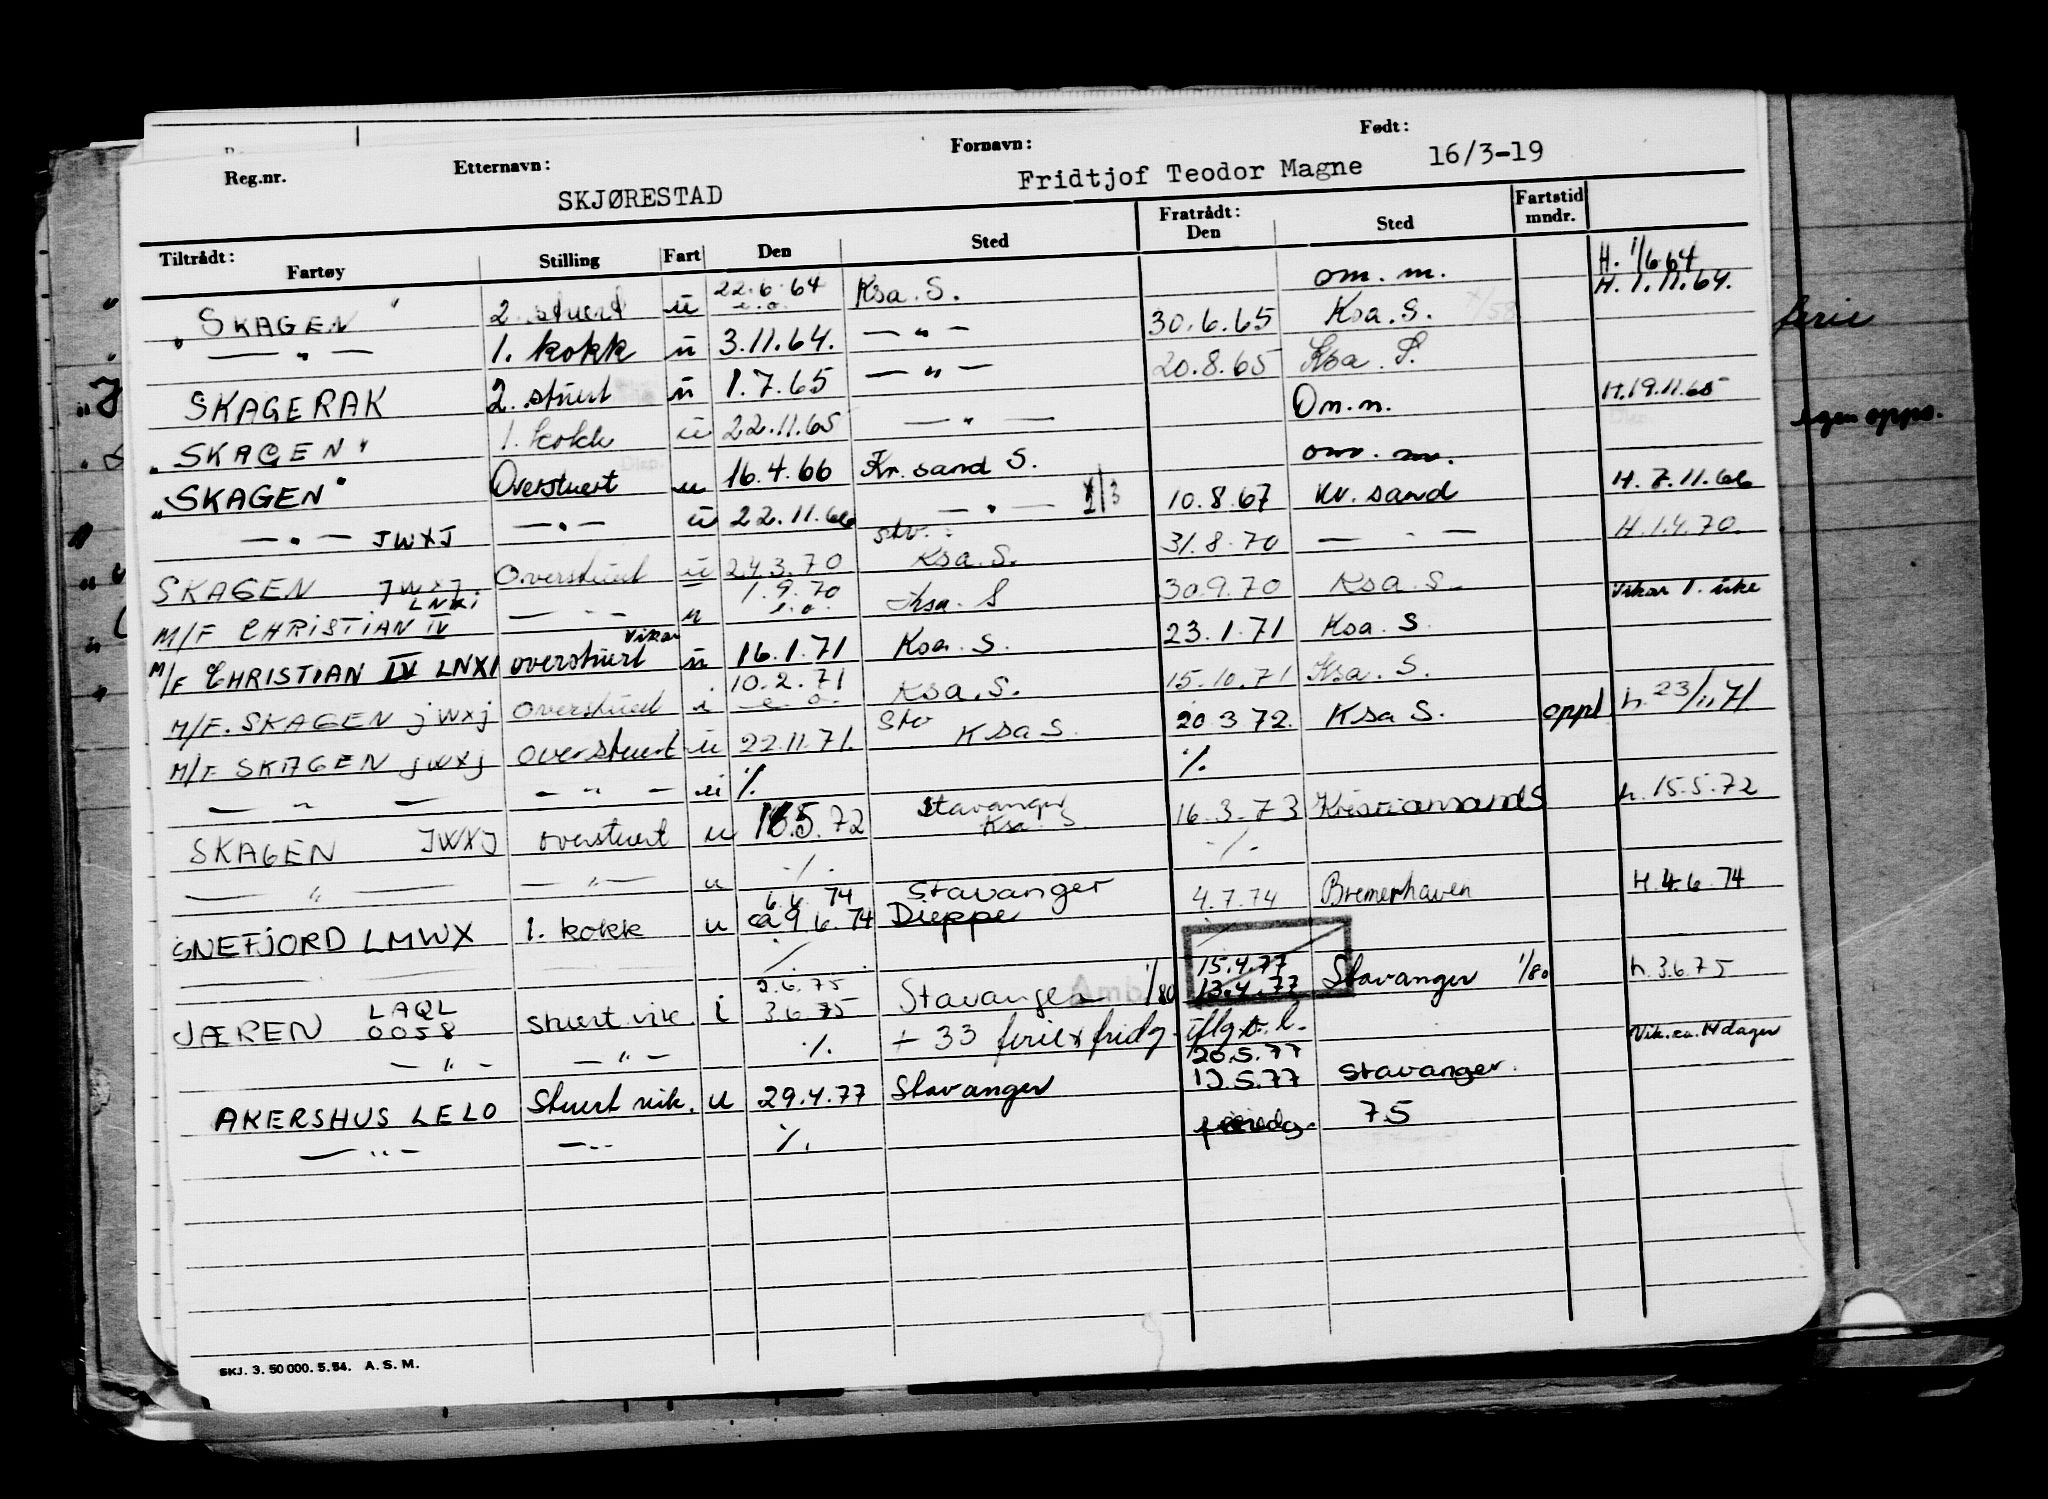 Reg.nr. Etternavn: Fornavn: Født:
SKJØRESTAD Fridtjof Teodor Magne 16/3-19
Tiltrådt: Fartøy Stilling Fart Den Sted Fratrådt: Den Sted Fartstid mndr.
"SKAGEN" 2. stuert u 22.6.64 e.o. Ksa. S. om. m. H. 1/6 64
— " — 1. kokk u 3.11.64. — " — 30.6.65 Ksa. S. H. 1.11.64.
SKAGERAK 2. stuert u 1.7.65 — " — 20.8.65 Ksa. S.
"SKAGEN" 1. kokk u 22.11.65 — " — Om.m. H.19.11.65
"SKAGEN" Overstuert u 16.4.66 Kr.sand S. om. m.
— " — JWXJ — " — u 22.11.66 — " — 1/3 10.8.67 Kr. sand H. 7.11.66
SKAGEN JWXJ Overstuert u 24.3.70 stv. Ksa. S. 31.8.70 — " — H.1.4.70.
M/F CHRISTIAN IV LNXI — " — u 1.9.70 e.o. Ksa. S 30.9.70 Ksa. S.
M/F CHRISTIAN IV LNXI overstuert vikar u 16.1.71 Ksa. S. 23.1.71 Ksa. S. Vikar 1. uke
M/F. SKAGEN jWXj overstuert u 10.2.71 e.o. Ksa. S. 15.10.71 Ksa. S.
M/F SKAGEN jWXj overstuert u 22.11.71. Sto Ksa S. 20 3 72. Ksa S. oppl h. 23/11.71
— " — — " — u ./. ./.
SKAGEN JWXJ overstuert u 16.5.72 Stavanger Ksa. S. 16.3.73 Kristiansand S h. 15.5.72
— " — — " — u ./. ./.
SNEFJORD LMWX 1. kokk u 6.6.74 ca 9.6.74 Stavanger Dieppe 4.7.74 Bremerhaven H.4.6.74
./.
JÆREN LAQL 0058 Stuert vik. i 2.6.75 3.6.75 Stavanger 1/80 15.4.77 13.4.77 Stavanger 1/80 h.3.6.75
— " — — " — ./. + 33 ferie & fridg.
AKERSHUS LELO Stuert vik. u 29.4.77 Stavanger 20.5.77 Stavanger. Vik. ca. 14 dager
— " — — " — ./. 75
SKJ. 3. 50 000. 5.54. A. S. M.
ferie
egen opps.